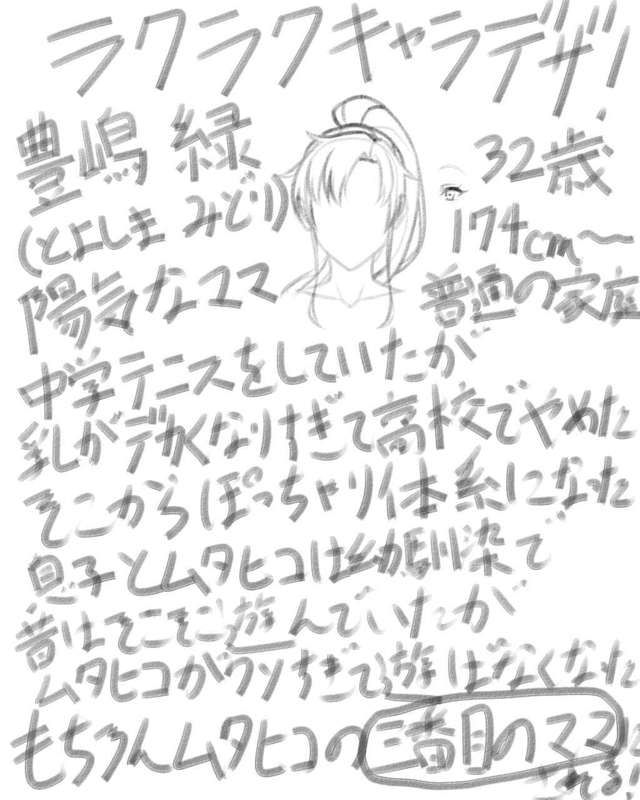 ラクラクキャラデザ!
豊嶋 緑
32歳
(とよしま みどり)
174cm〜
陽気なママ
普通の家庭
中学テニスをしていたが
乳がデカくなりすぎて高校でやめた
そこからぽっちゃり体系になった
息子とムタヒコは幼馴染で
昔はそこそこ遊んでいたが
ムタヒコがウソすぎて遊ばなくなった
もちろんムタヒコの三番目のママに
される!